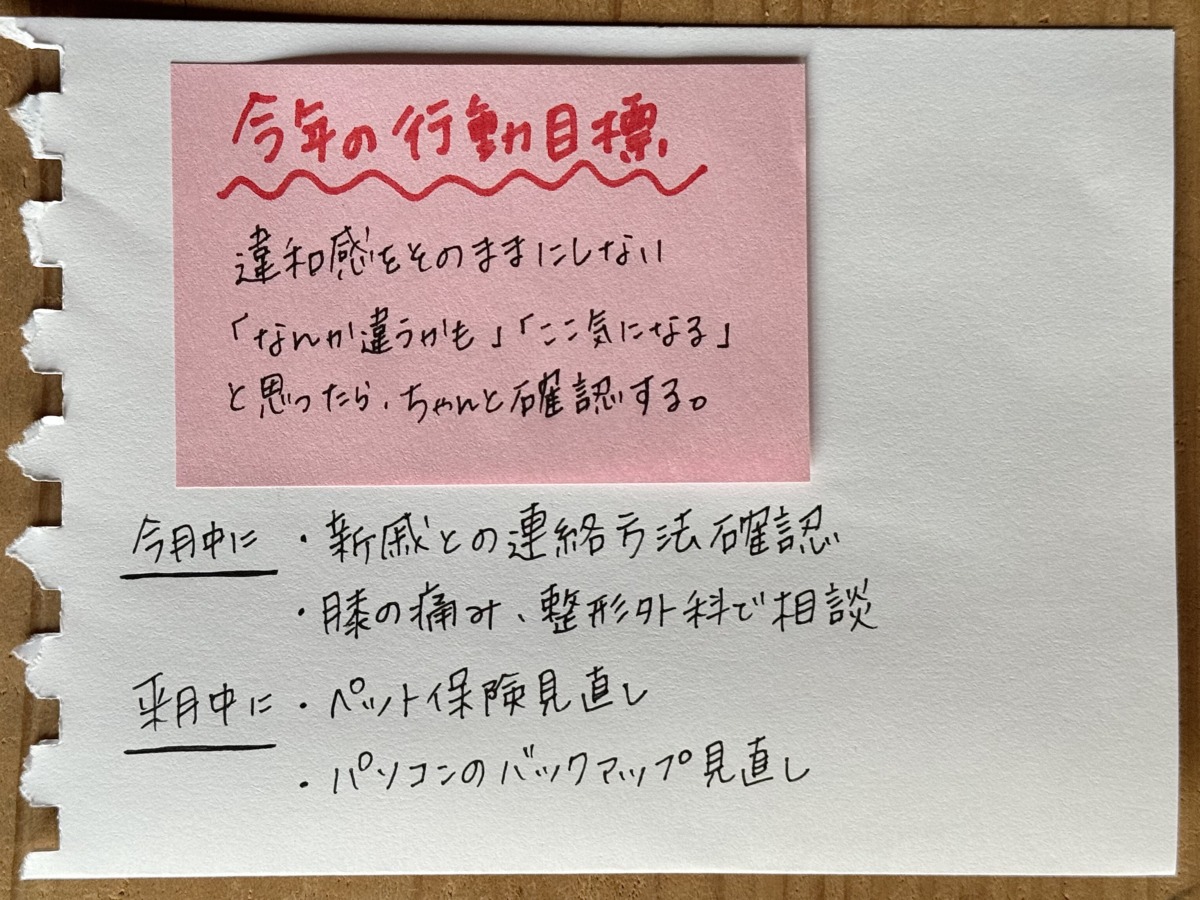 今年の行動目標
違和感をそのままにしない
「なんか違うかも」「ここ気になる」
と思ったら、ちゃんと確認する。
今月中に ・新戚との連絡方法確認
・膝の痛み、整形外科で相談
来月中に ・ペット保険見直し
・パソコンのバックアップ見直し